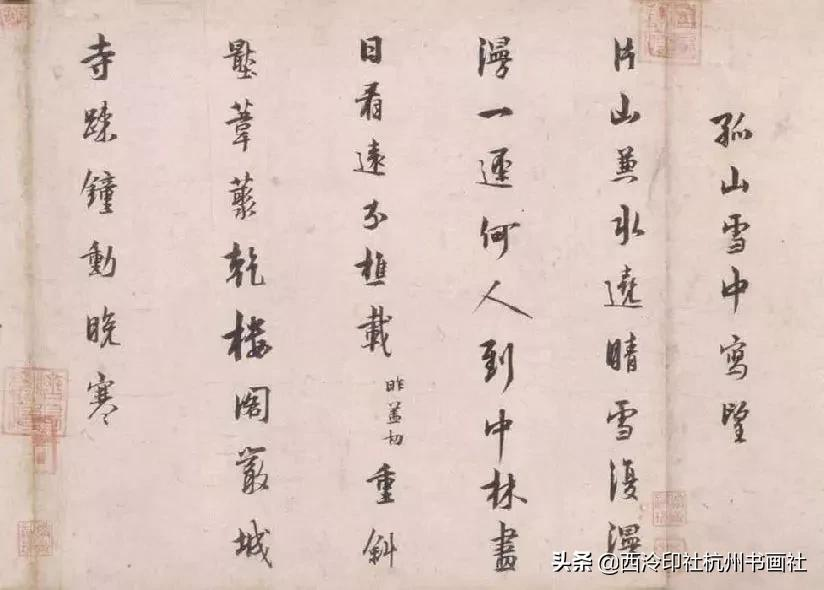 孤山雪中寫望
片山兼水遶晴雪復漫
漫一逕何人到中林盡
日看遠分樵載昨蓋切重斜
壓葦藂乾樓閣嚴城
寺疎鐘動晚寒
头条 @西泠印社杭州书画社